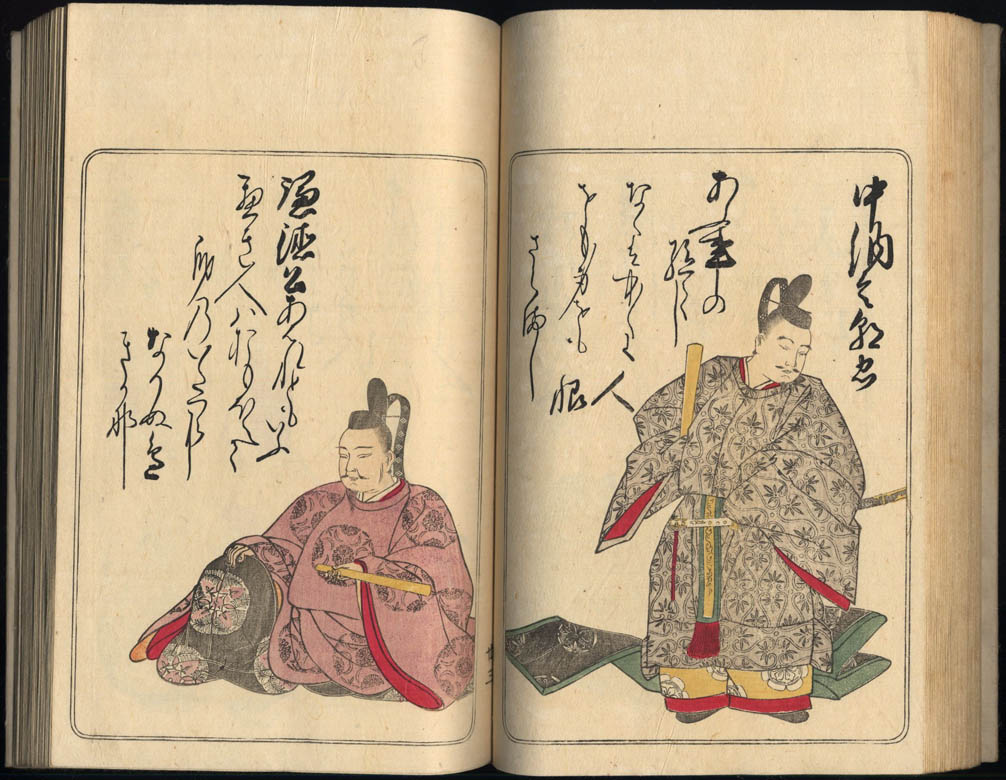 中納言朝忠
あふ事の
絶てし
なくは中〳〵に人
をも身をも恨
さらまし
謙徳公あはれともいふ
へき人はおもほえて
身のいたつらに
なりぬへ
きかな